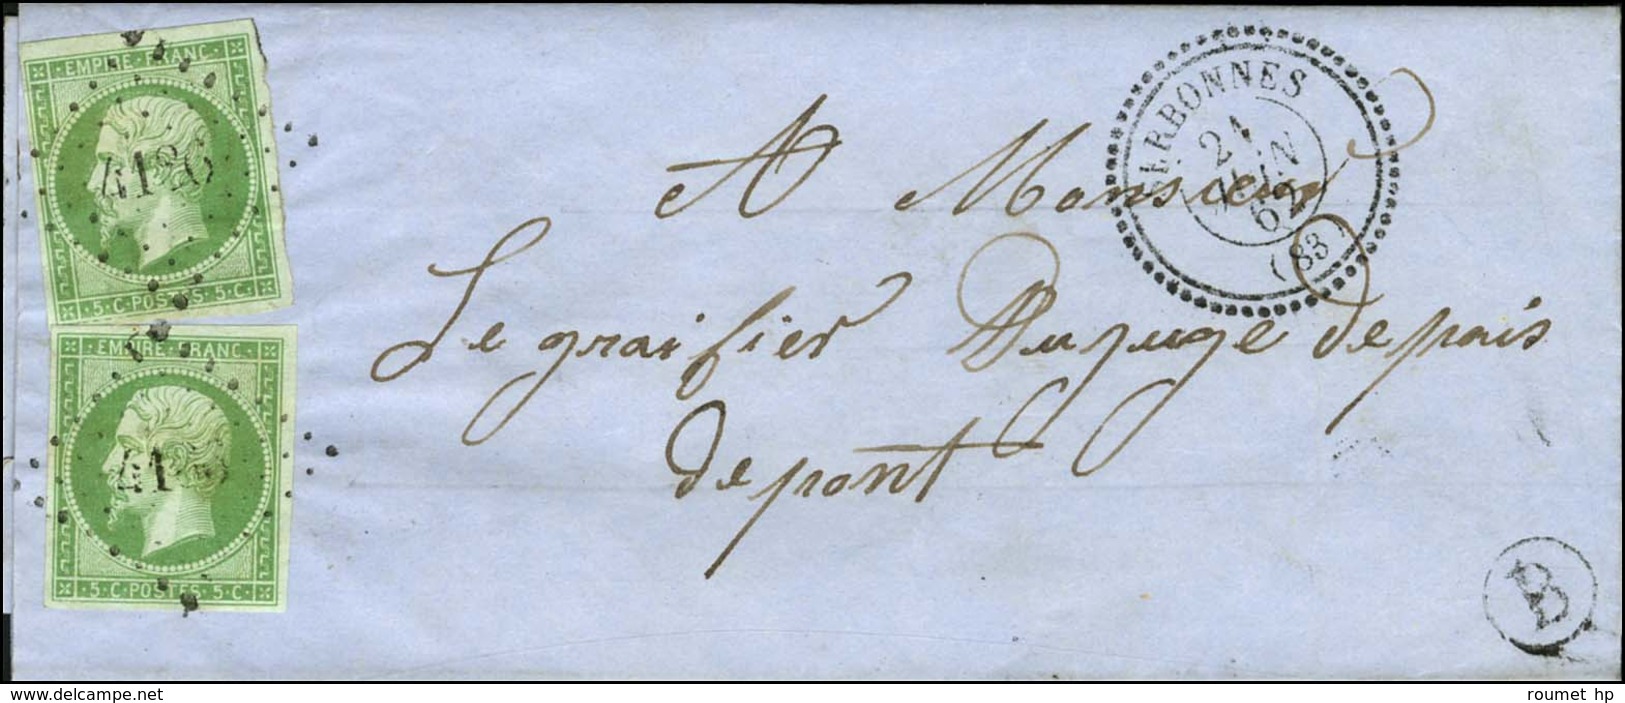 EMPIRE · FRANC ·
4186
· 5 · C · POSTES · 5 · C ·
EMPIRE · FRANC ·
5 · C · POSTES · 5 · C ·
SERBONNES
21
JUIN
62
(83)
A Monsieur
Le graifier Dujuge depais
depont
B
www.delcampe.net
roumet hp